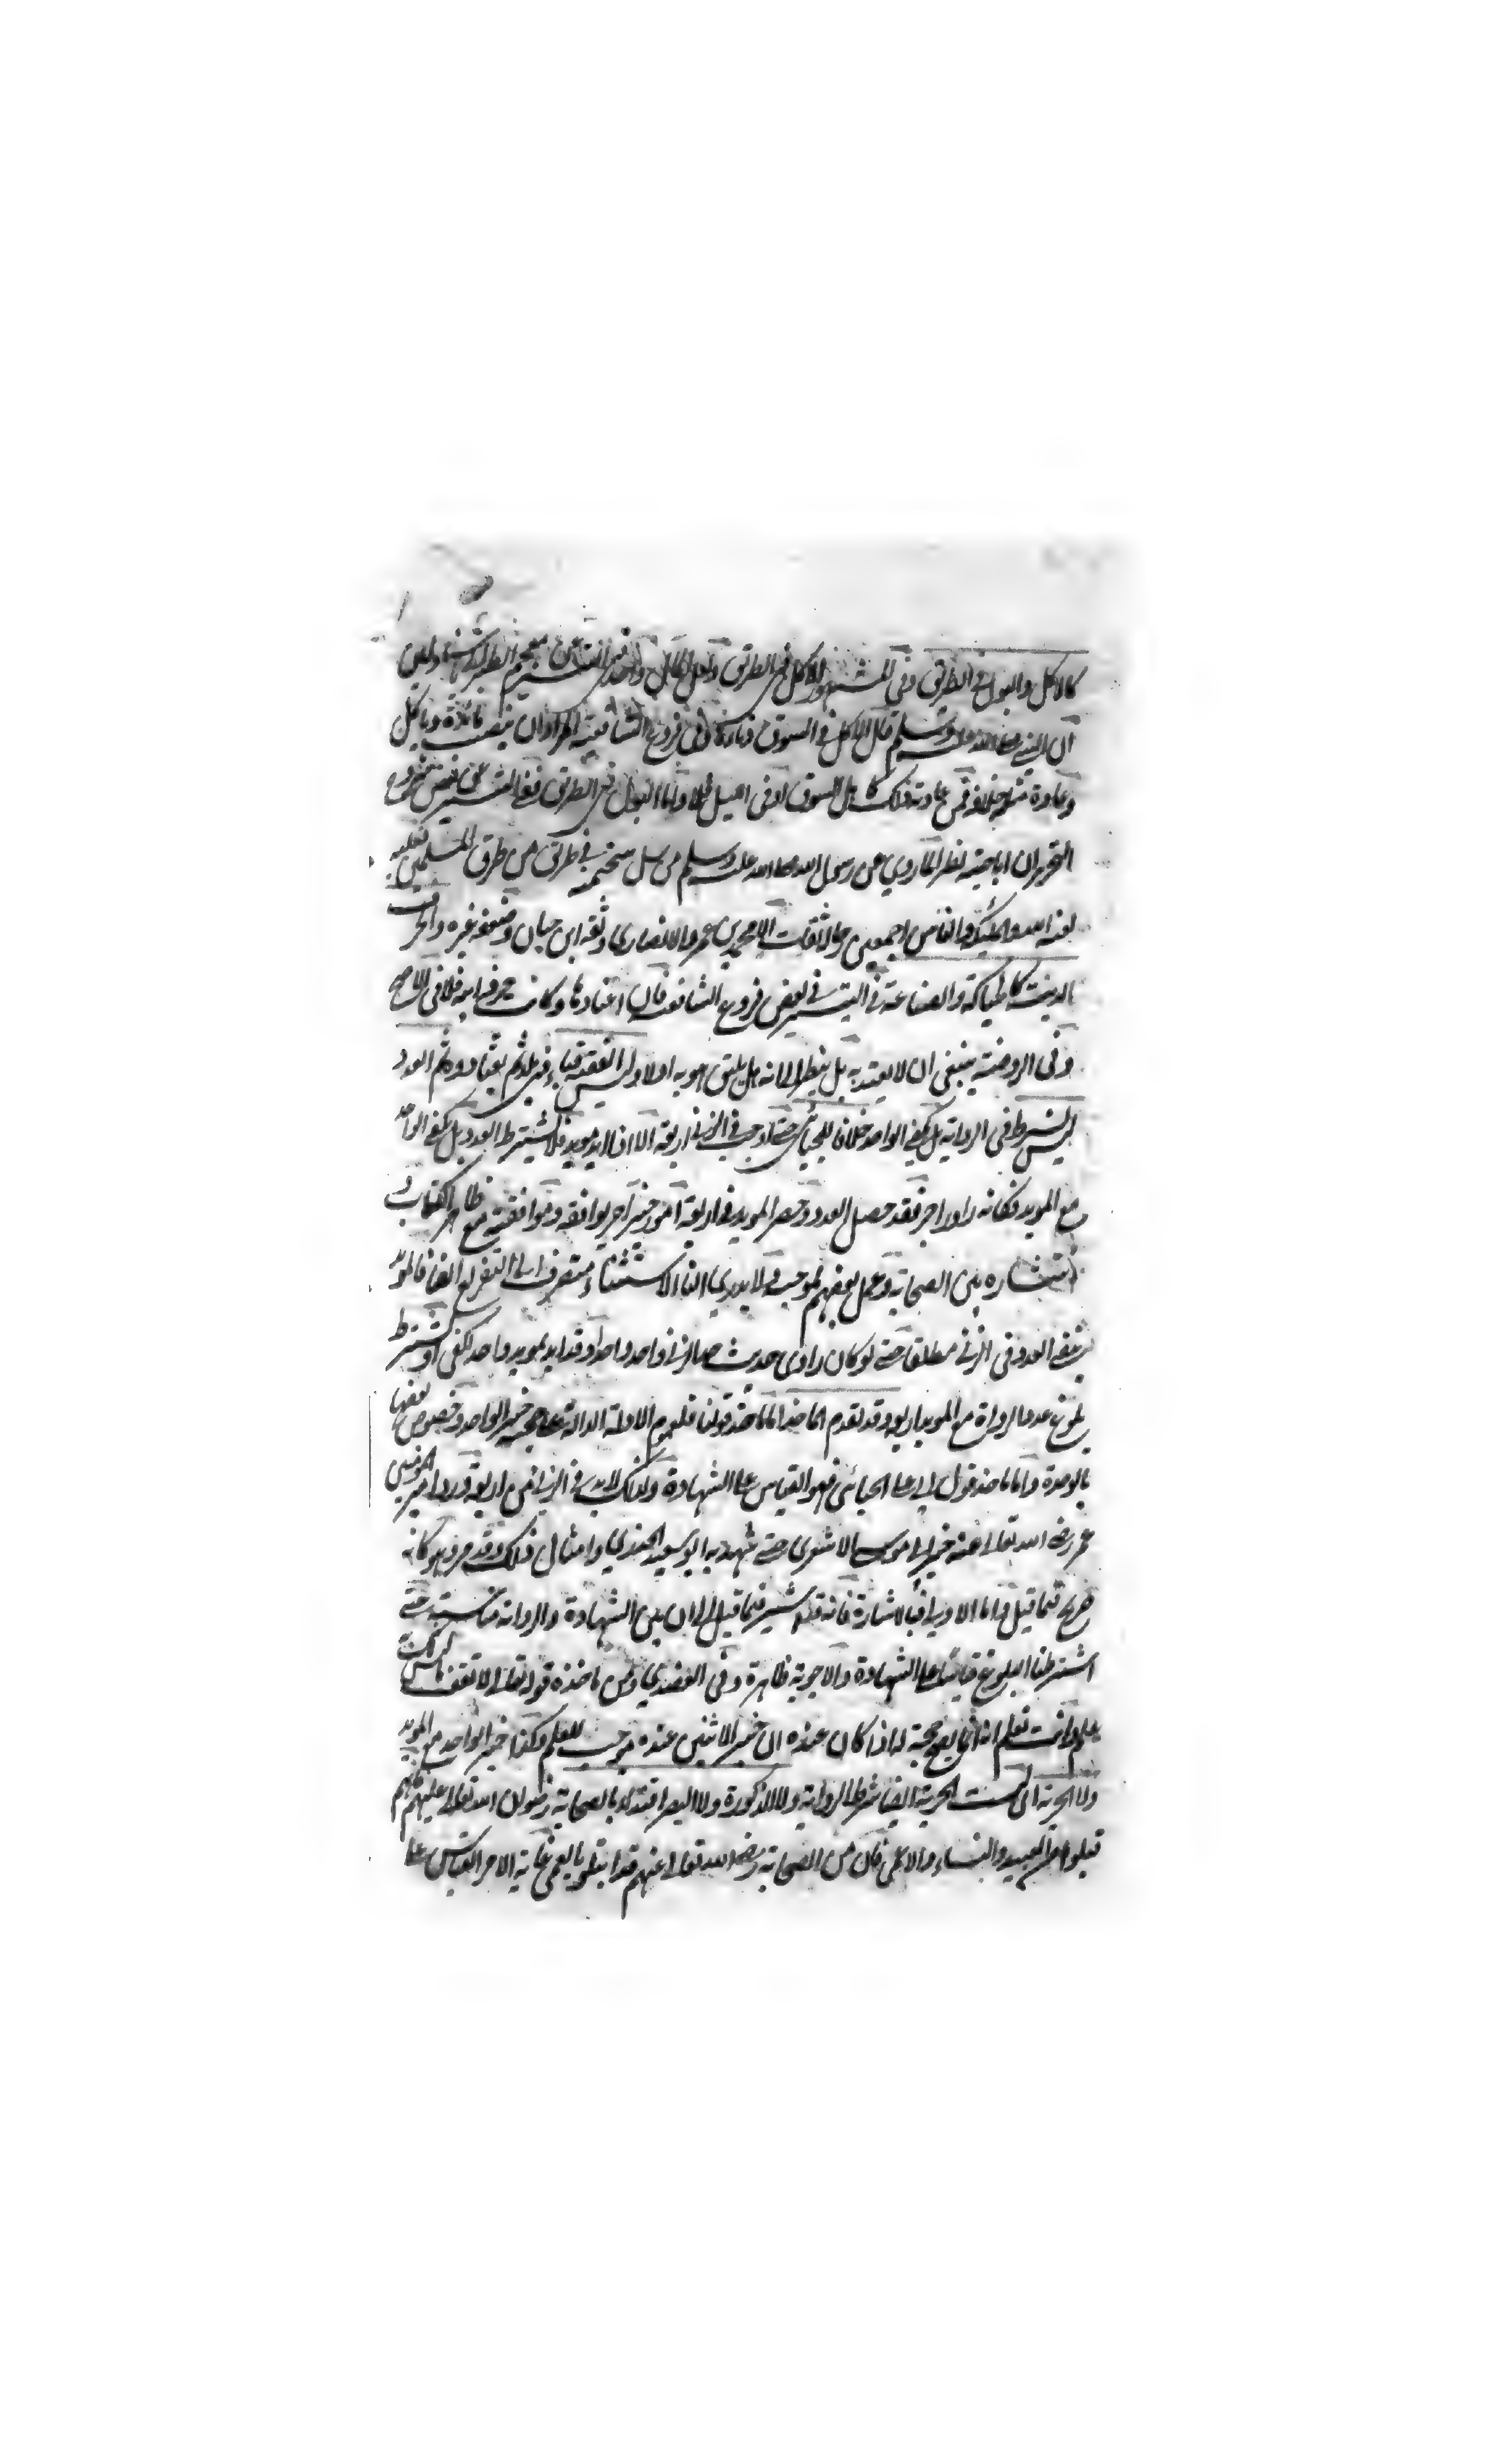 كالاكل والبول في الطريق وفي المشهور الاكل في الطريق معجم الطبراني
ان النبي صلى الله عليه وسلم قال الاكل في السوق دناءة وفي فروع الشافعية المراد ان ينصب مائدة وياكل
وعادة مثله خلافه فمن عادته ذلك كاهل السوق او في الليل فلا واما البول في الطريق ففي التيسير عن بعض شروح
التحرير ان اباحته نظر لما روي عن رسول الله صلى الله عليه وسلم من سل سخيمته في طريق من طرق المسلمين فعليه
لعنة الله والملئكة والناس اجمعين رجاله ثقات الا محمد بن عمرو الانصاري وثقه ابن حبان وضعفه غيره والحرف
الدنية كالحياكة والصناعة في التيسير في بعض فروع الشافعية فان اعتادها وكانت حرفة ابيه فلا في الاصح
وفي الروضة ينبغي ان لا يعتد به بل ينظر الى انه هل يليق هو به اولا وليس الفقه قباء في بلد ثم بقباء وثم العدد
ليس بشرط في الرواية بل يكفي الواحد خلافا للجبائي حتى اوجب في الزنى اربعة الا اذا ايد بمويد فلا يشترط العدد بل يكفي الواحد
مع المويد فكانه راو اخر فقد حصل العدد وحصر المويد في اربعة امور خبر اخر يوافقه وموافقته مع ظاهر الكتاب و
انتشاره بين الصحابة وعمل بعضهم بموجبه ولا يدري ان الاستثناء منصرف الى التفريع ايضا فالمويد
ينفيه العدد في الزنى مطلقا حتى لو كان راوي حديث حد الزنى واحد واحدا وقد ايد بمويد واحد لكفى او يشترط
بلوغ عدد الرواة مع المويد اربعة وقد تقدم الماخذ اما ماخذ قولنا فلعموم الادلة الدالة على حجية خبر الواحد وخصوص بعضها
بالوحدة واما ماخذ قول ابي علي الجبائي فهو القياس على الشهادة ولذلك لا بد في الزنى من اربعة ورد امير المومنين
عمر رضي الله تعالى عنه خبر ابي موسى الاشعري حتى شهد به ابو سعيد الخدري وامثال ذلك وقد مر وهو كانه
صريح فيما قيل واما الاول فبالاشارة فانه قد اشير فيما قيل الى ان بين الشهادة والرواية مناسبة حتى
اشترطنا البلوغ قياسا على الشهادة والاجوبة ظاهرة وفي العضدي ومن ماخذه قوله تعالى ولا تقف ما ليس لك به
علم وانت تعلم انه انما يصح حجة له اذا كان عنده ان خبر الاثنين عنده موجب للعلم وكذا خبر الواحد مع المويد
ولا الحرية اي ليست الحرية ايضا شرط الرواية ولا الذكورة ولا البصر اقتداء بالصحابة رضوان الله تعالى عليهم فانهم
قبلوا من العبيد والنساء والاعمى فان من الصحابة رضي الله تعالى عنهم قد ابتلوا بالعمى غاية الامر القياس على